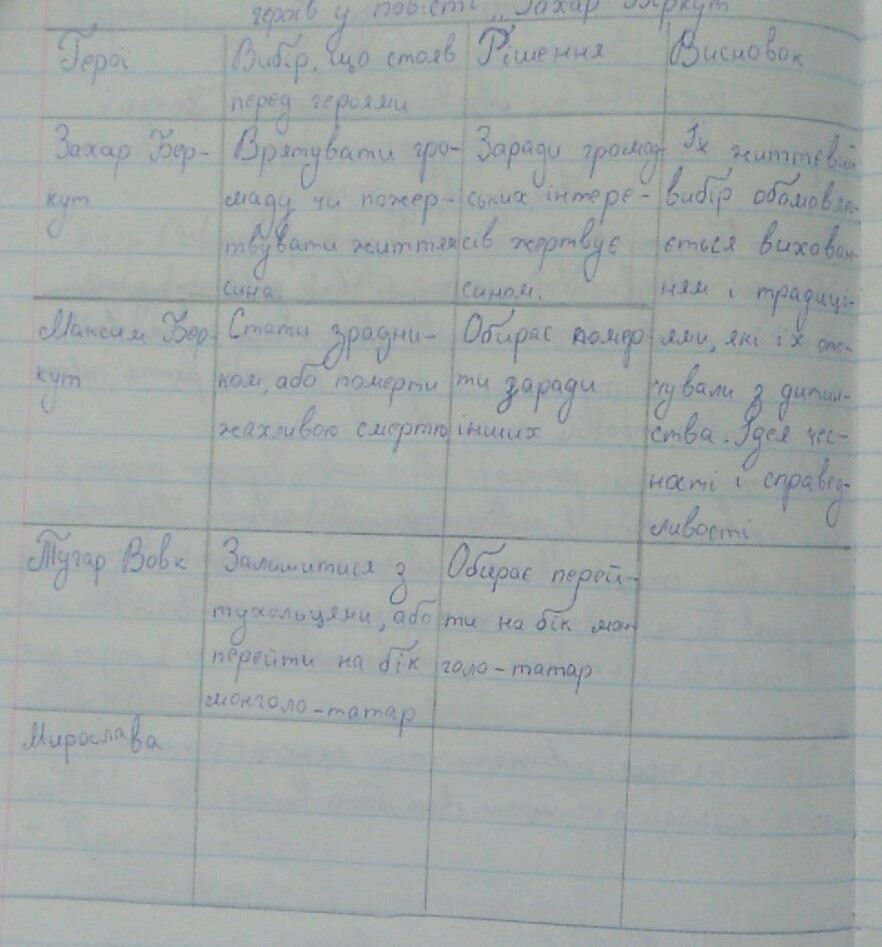 героїв у повісті „Захар Беркут
Герої
Вибір, що стояв
перед героями
Рішення
Висновок
Захар Бер-
кут
Врятувати гро-
маду чи пожер-
твувати життям
сина
Заради громад
ських інтере-
сів жертвує
сином.
Їх життєвий
вибір обомовлю-
ється вихован-
ням і традиці-
ями, які їх ото-
чували з дитин-
ства. Ідея чес-
ності і справед-
ливості
Максим Бер
кут
Стати зрадни-
ком, або померти
жахливою смертю
Обирає помер
ти заради
інших
Тугар Вовк
Залишитися з
тухольцями, або
перейти на бік
монголо-татар
Обирає перей-
ти на бік мон
голо-татар
Мирослава